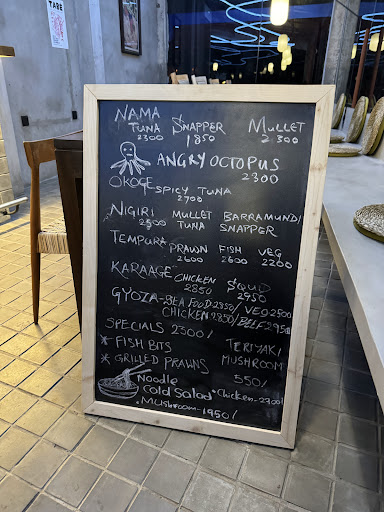 TARE
NAMA
TUNA SNAPPER MULLET
2300 1850 2300
ANGRY OCTOPUS
2300
OKOGE SPICY TUNA
2700
NIGIRI MULLET BARRAMUNDI
2500 TUNA SNAPPER
TEMPURA PRAWN FISH VEG
2600 2600 2200
KARAAGE CHICKEN SQUID
2850 2950
GYOZA-SEA FOOD 2850/VEG 2500
CHICKEN 2850/BEEF 2950
SPECIALS 2300/
* FISH BITS TERIYAKI
* GRILLED PRAWNS MUSHROOM
550/
Noodle
Cold Salad * Chicken-2300/
. MUSHROOM-1950/